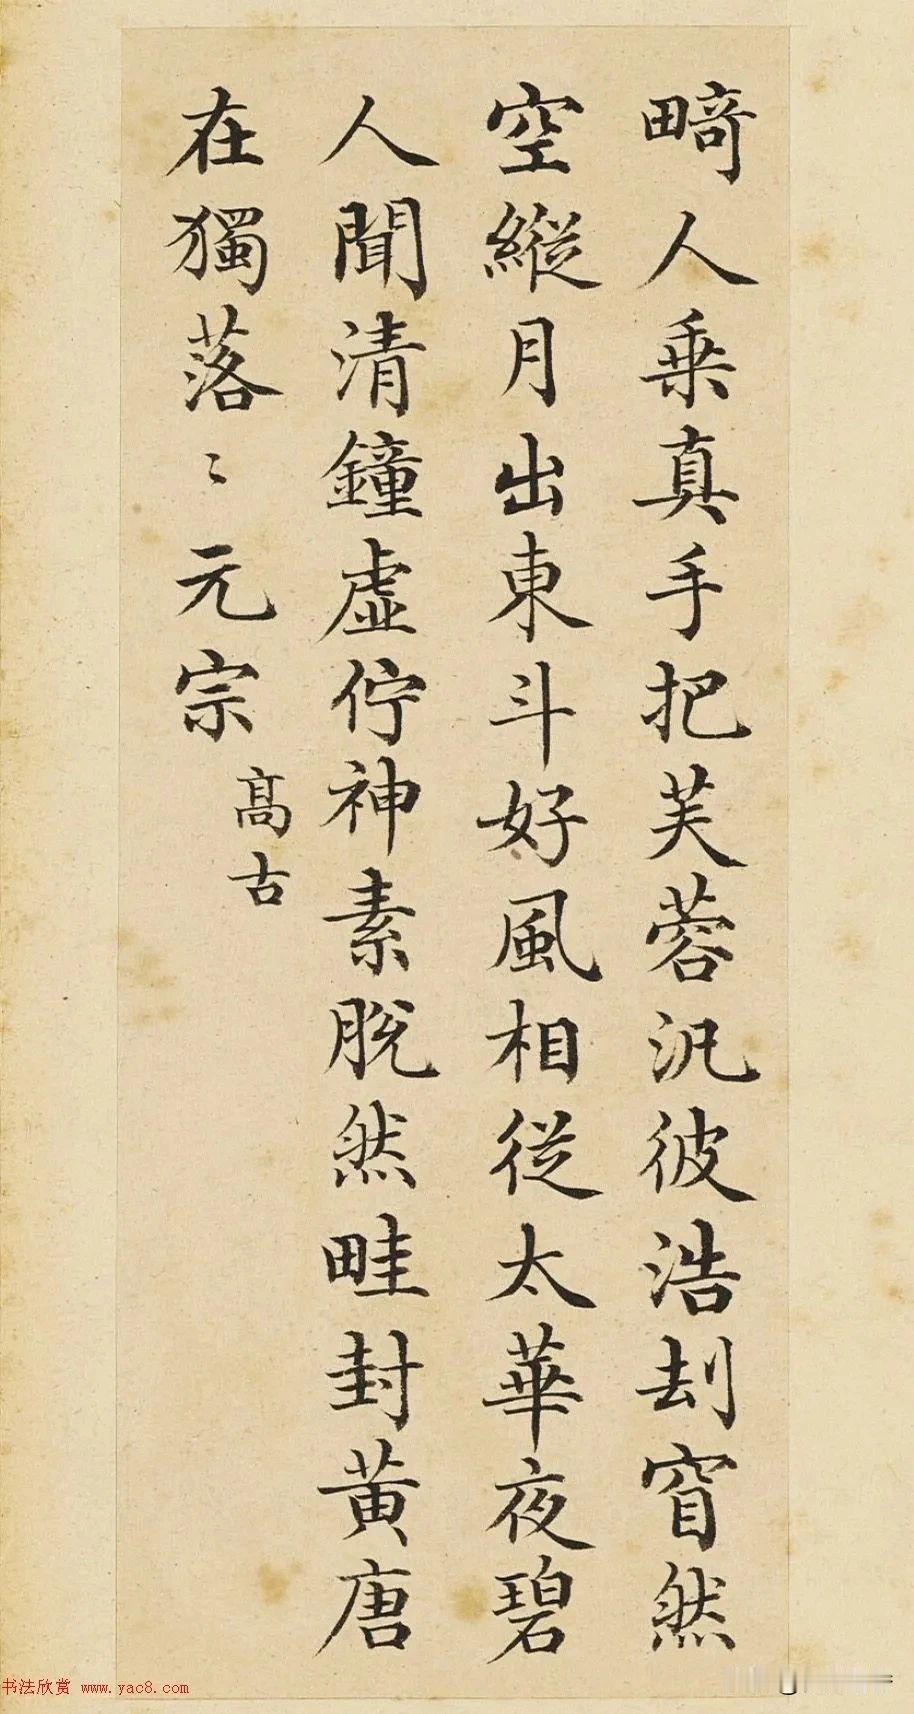 畸人乗真手把芙蓉汎彼浩刦窅然
空縱月出東斗好風相從太華夜碧
人聞清鐘虛佇神素脫然畦封黃唐
在獨落〻元宗
高古
书法欣赏 www.yac8.com